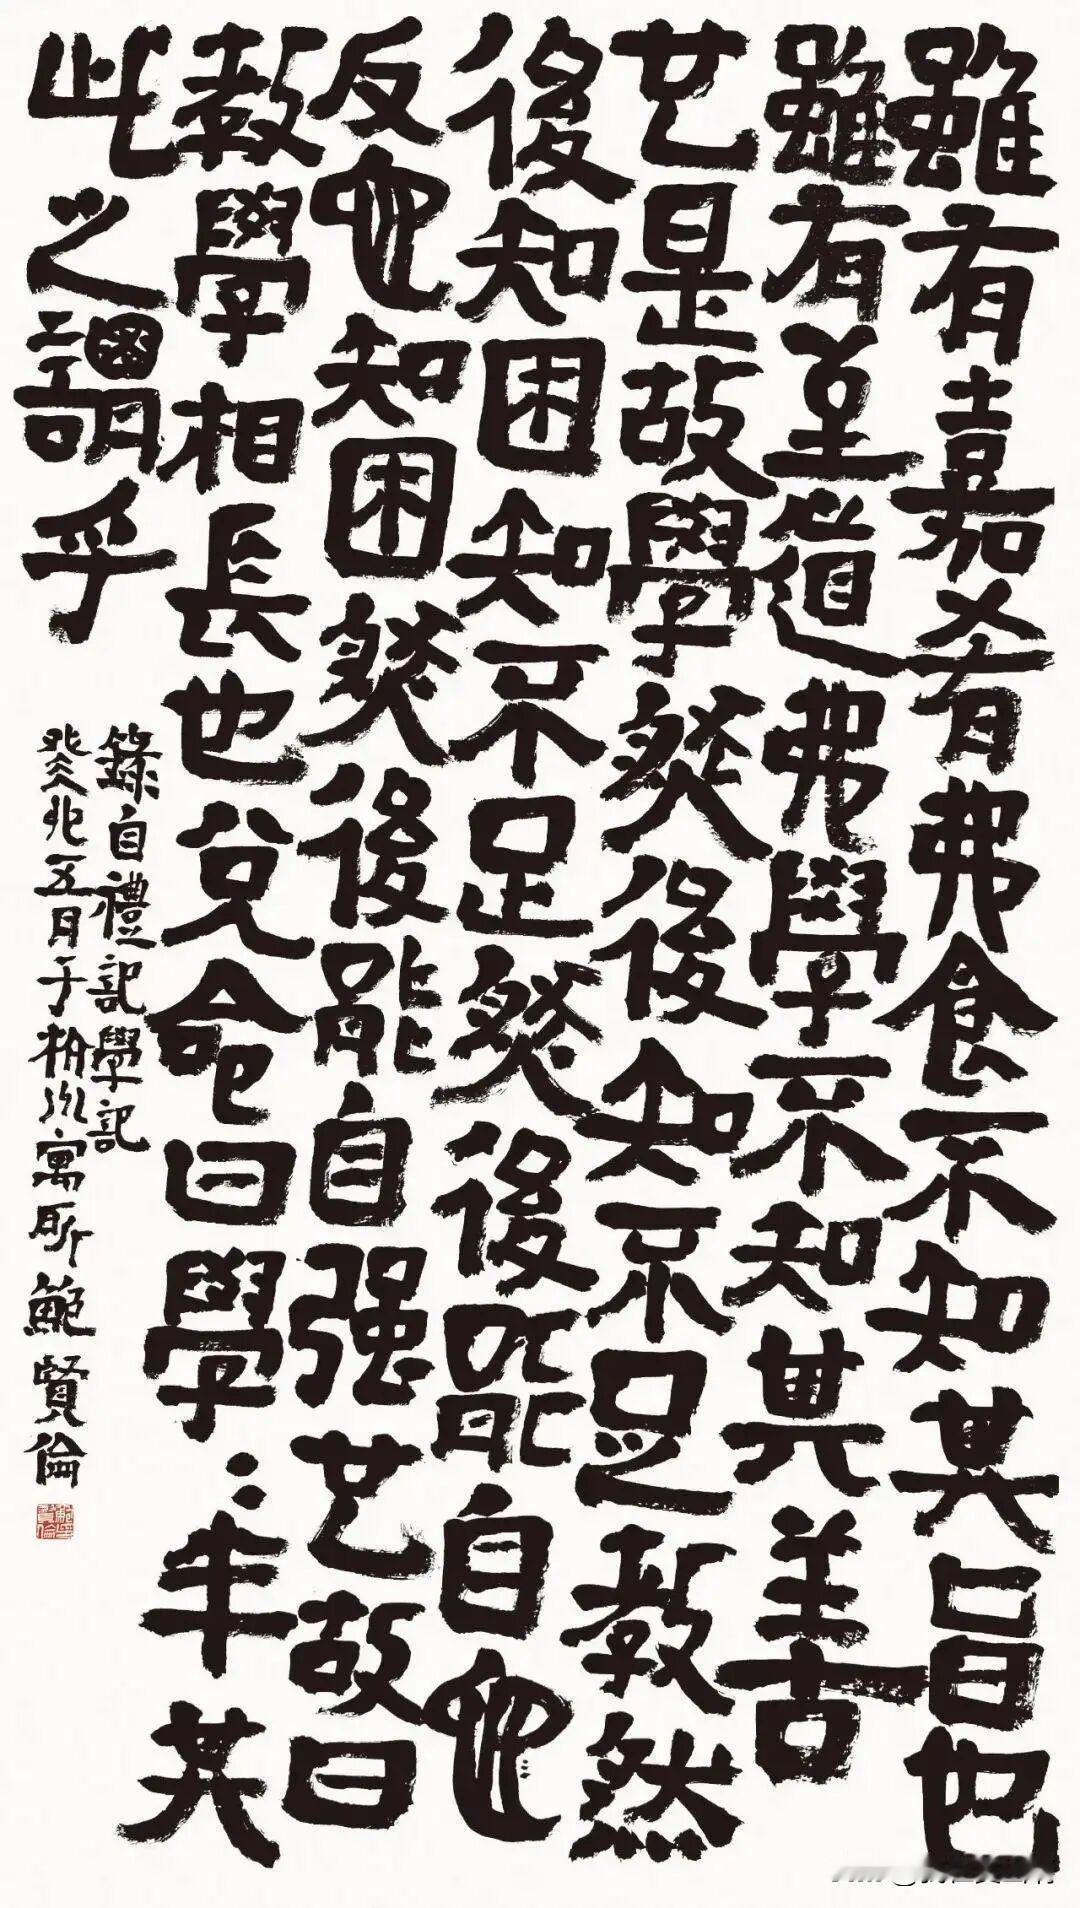 雖有嘉肴弗食不知其旨也
雖有至道弗學不知其善
也是故學然後知不足教然
後知困知不足然後能自也
反也知困然後能自强也故曰
教學相長也兌命曰學：半其
此之謂乎
錄自禮記學記
癸卯五月于寓所鮑賢倫